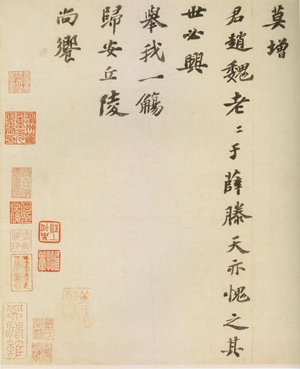 莫增
君趙魏老〻于薛滕天亦愧之其
世必興
舉我一觴
歸安丘陵
尚饗